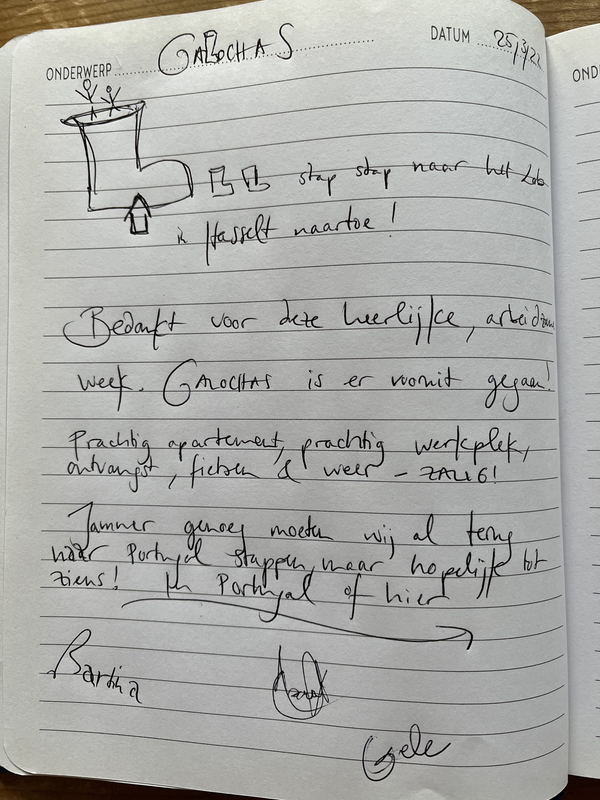 ONDERWERP GALOCHAS DATUM 25/3/22
OND
stap stap naar het Lab
in Hasselt naartoe!
Bedankt voor deze heerlijke, arbeidzame
week. GALOCHAS is er vooruit gegaan!
Prachtig apartement, prachtig werkplek,
ontvangst, fietsen & weer - ZALIG!
Jammer genoeg moeten wij al terug
naar Portugal stappen, maar hopelijk tot
ziens! In Portugal of hier
Bartina
Gele